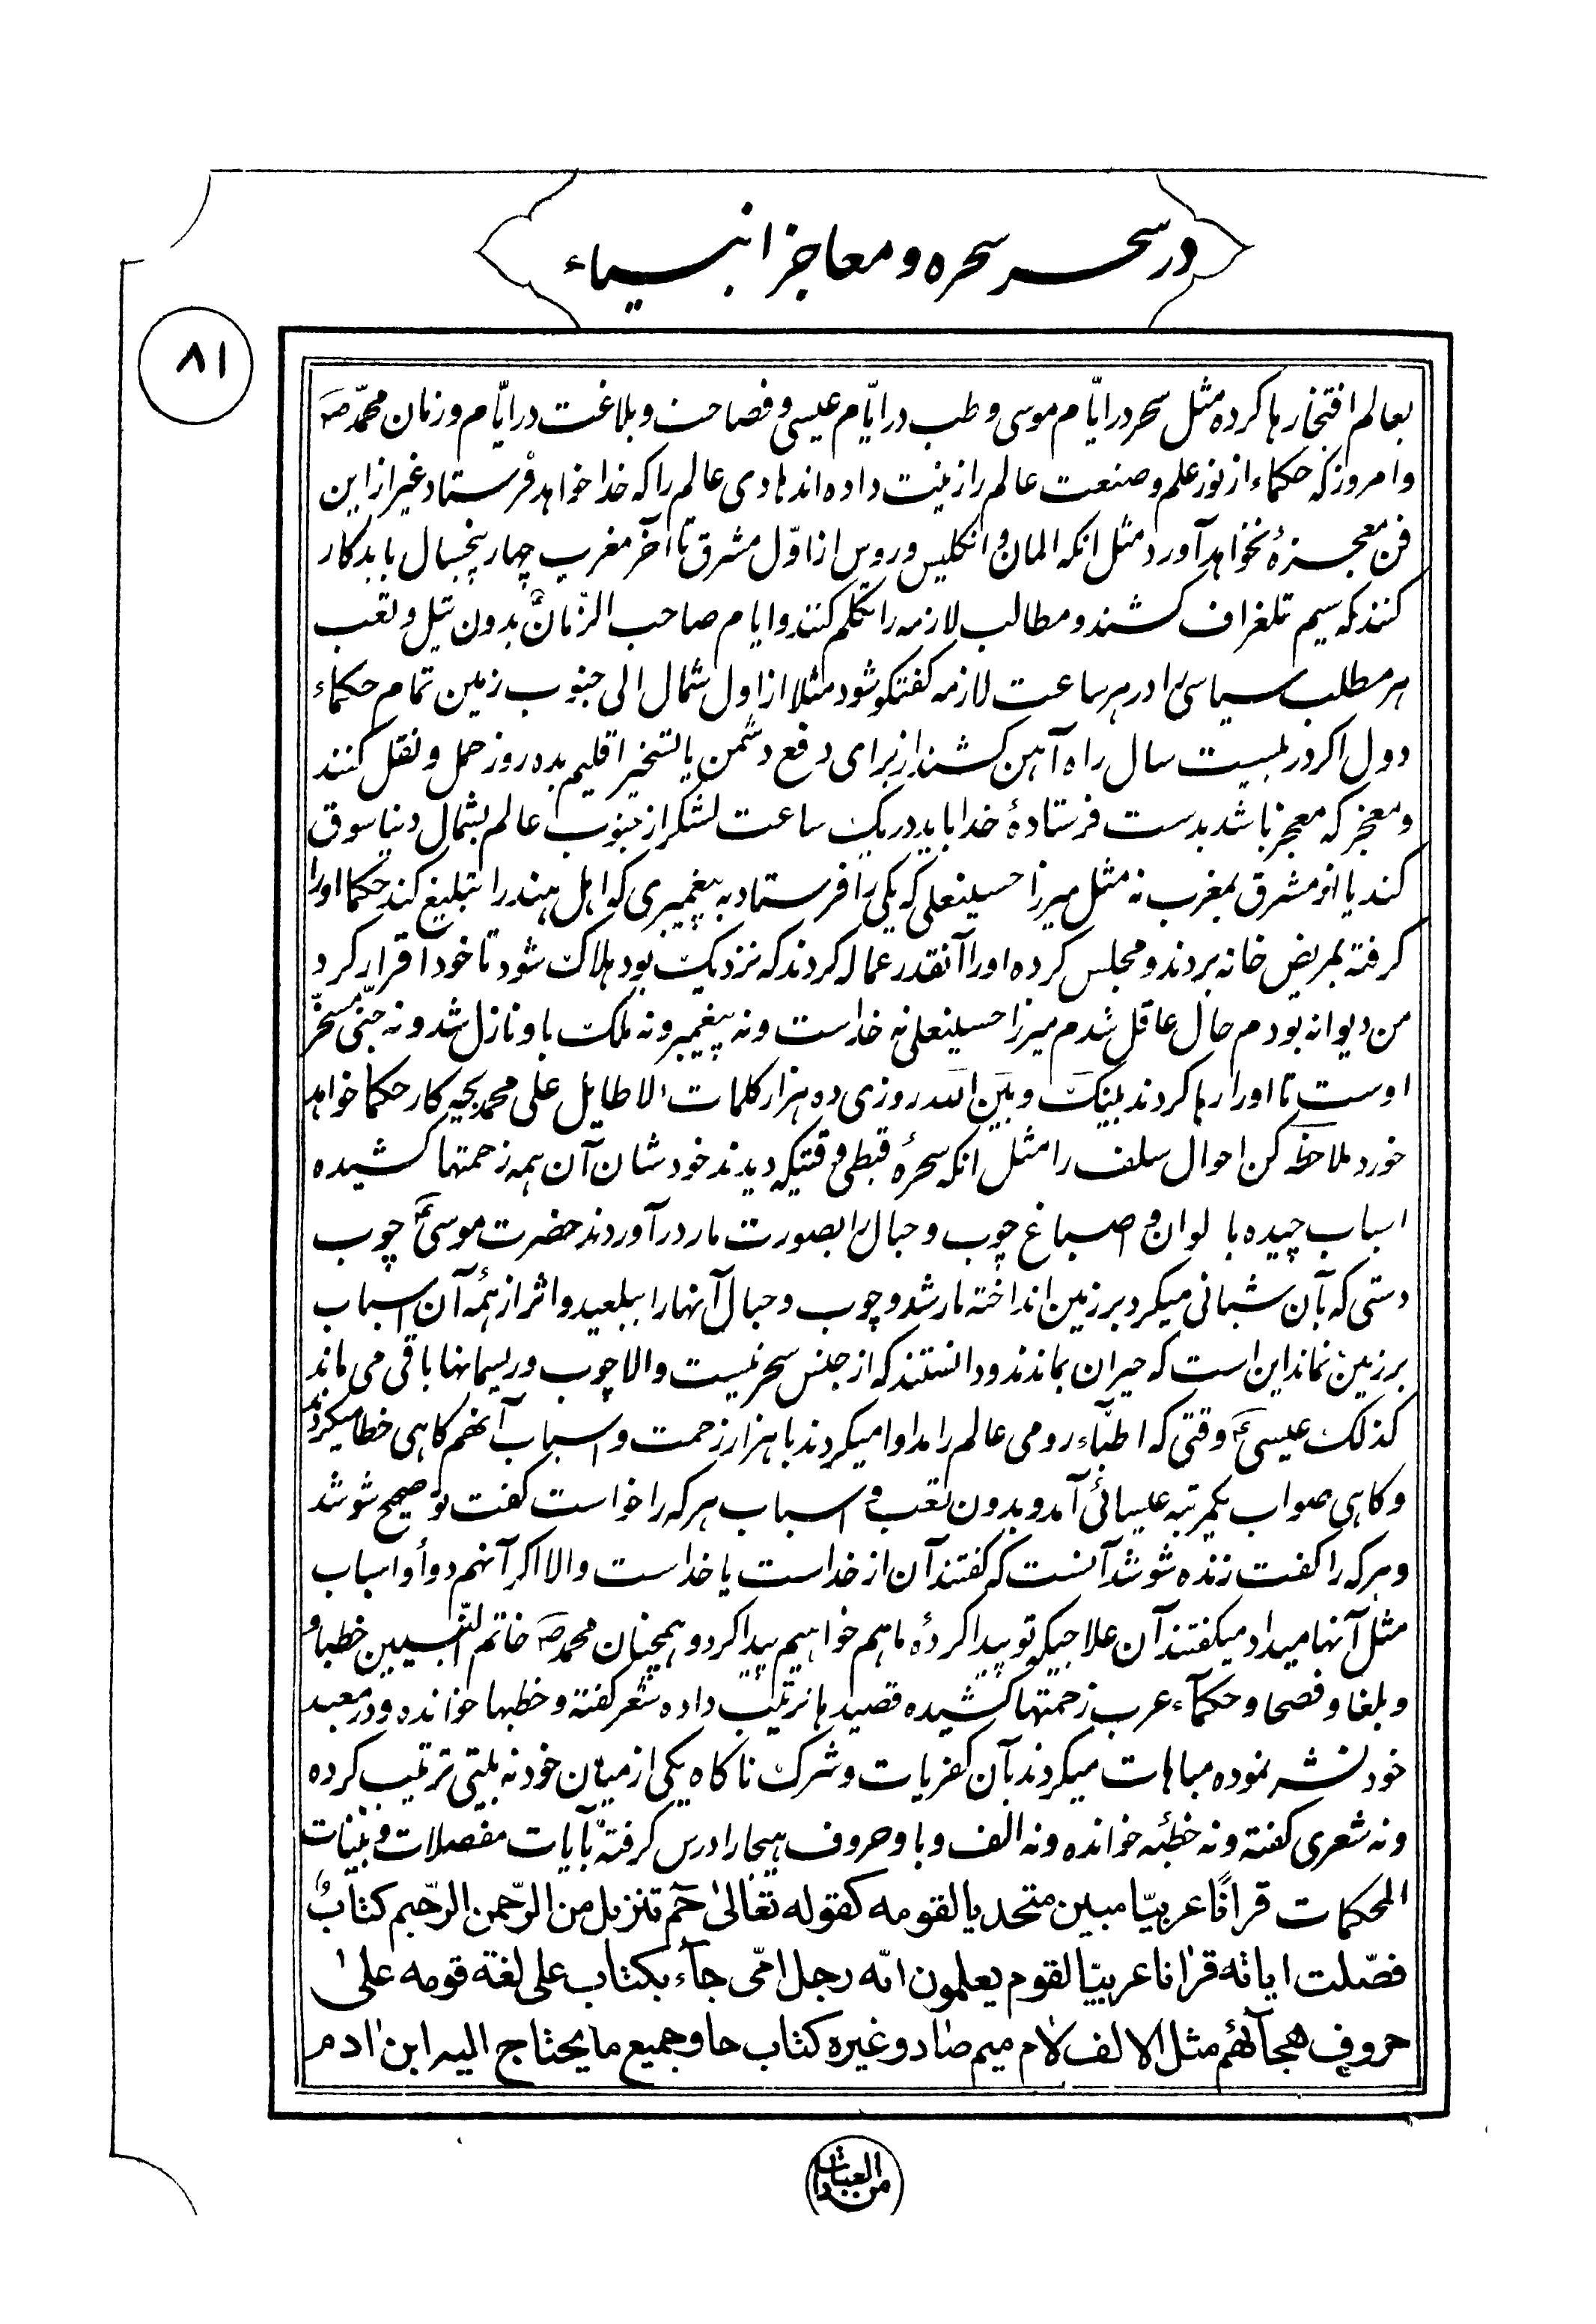 در سحر سحره و معاجز انبیاء
۸۱
بعالم افتخارها کرده مثل سحر در ایّام موسی و طب در ایّام عیسی و فصاحت و بلاغت در ایّام و زمان محمّد صۤ
و امروز که حکماء از نور علم و صنعت عالم را زینت داده اند هادی عالم را که خدا خواهد فرستاد غیر از این
فن معجزهٔ نخواهد آورد مثل انکه المان و انکلیس و روس از اوّل مشرق تا آخر مغرب چهار پنجسال باید کار
کنند که سیم تلغراف کشند و مطالب لازمه را تکلم کنند و ایام صاحب الزّمانؑ بدون تیل و تعب
هر مطلب سیاسی را در هر ساعت لازمه کفتکو شود مثلا از اول شمال الی جنوب زمین تمام حکماء
دول اکر در بیست سال راه آهن کشند از برای دفع دشمن یا تسخیر اقلیم بده روز حمل و نقل کنند
و معجز که معجز باشد بدست فرستادهٔ خدا باید در یک ساعت لشکر از جنوب عالم بشمال دنیا سوق
کند یا از مشرق بمغرب نه مثل میرزا حسینعلی که یکی را فرستاد به پیغمبری کو اهل هند را تبلیغ کند حکما او را
کرفته بمریض خانه بردند و مجلس کرده او را آنقدر عماله کردند که نزدیک بود هلاک شود تا خود اقرار کرد
من دیوانه بودم حال عاقل شدم میرزا حسینعلی نه خداست و نه پیغمبر و نه ملک باو نازل شد و نه جنّی مسخّر
اوست تا او را رها کردند بینک و بین الله روزی ده هزار کلمات لا طایل علی محمد بچه کار حکما خواهد
خورد ملاحظه کن احوال سلف را مثل انکه سحرهٔ قبطی وقتیکه دیدند خودشان آن همه زحمتها کشیده
اسباب چیده با لوان و اصباغ چوب و حبال را بصورت مار در آوردند حضرت موسیؑ چوب
دستی که بآن شبانی میکرد بر زمین انداخته مار شد و چوب و حبال آنها را ببلعید و اثر از همهٔ آن اسباب
بر زمین نماند این است که حیران بماندند و دانستند که از جنس سحر نیست و الا چوب و ریسمانها باقی می ماند
کذلک عیسیؑ وقتی که اطبّاء رومی عالم را مداوا میکردند با هزار زحمت و اسباب آنهم کاهی خطا میکردند
و کاهی صواب یکمرتبه عیسائی آمد و بدون تعب و اسباب هر که را خواست کفت تو صحیح شو شد
و هر که را کفت زنده شو شد آنست که کفتند آن از خداست یا خداست و الا اکر آنهم دوا و اسباب
مثل آنها میداد میکفتند آن علاجیکه تو پیدا کردهٔ ما هم خواهیم پیدا کرد و همچنان محمد صۤ خاتم النّبیین خطبا و
و بلغا و فصحا و حکمآء عرب زحمتها کشیده قصیدها ترتیب داده شعر کفته و خطبها خوانده و در معبد
خود نشر نموده مباهات میکردند بآن کفریات و شرک ناکاه یکی از میان خود نه بیتی ترتیب کرده
و نه شعری کفته و نه خطبهٔ خوانده و نه الف و با و حروف هیجا را درس کرفته بآیات مفصلات و بیّنات
المحکمات قرانًا عربیّا مبین متحدیا لقومه کقوله تعالیٰ حٓم تنزیل من الرّحمن الرّحیم کتابٌ
فصّلت ایاته قرانا عربیّا لقوم یعلمون انّه رجل امّی جآء بکتاب علی لغة قومه علیٰ
حروف هجآئهم مثل الالف لام میم صاد و غیره کتاب حاو جمیع ما یحتاج الیه ابن ادم